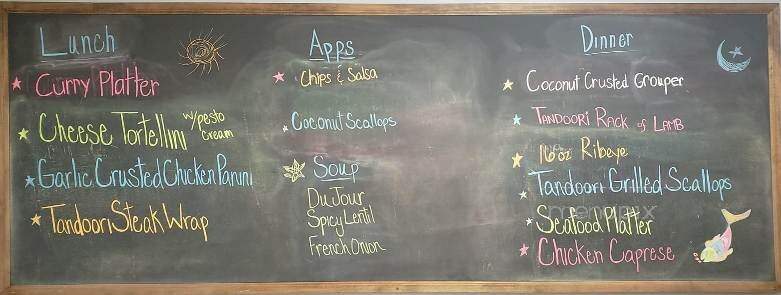 Lunch
Curry Platter
Cheese Tortellini w/pesto cream
Garlic Crusted Chicken Panini
Tandoori Steak Wrap
Apps
Chips & Salsa
Coconut Scallops
Soup
Du Jour
Spicy Lentil
French Onion
Dinner
Coconut Crusted Grouper
Tandoori Rack of Lamb
16 oz Ribeye
Tandoori Grilled Scallops
Seafood Platter
Chicken Caprese